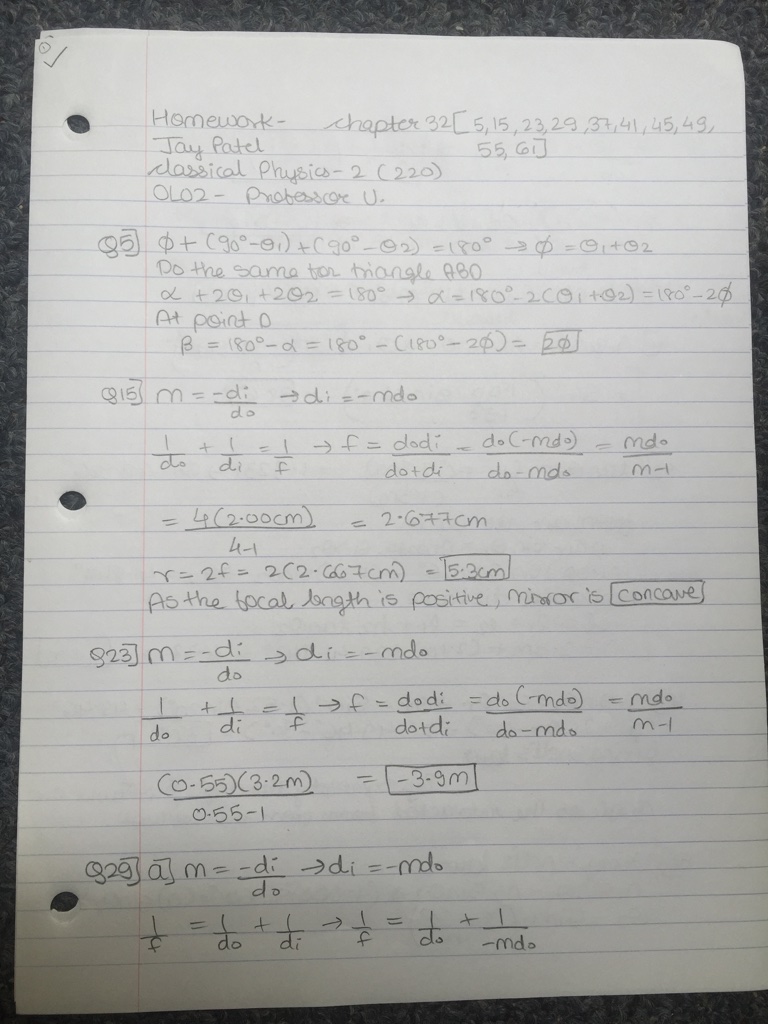 ① ✓
Homework- chapter 32 [5,15,23,29,37,41,45,49,
Jay Patel 55,61]
classical Physics-2 (220)
OL02- Professor U.
Q5] ϕ + (90°-θ1) + (90°-θ2) = 180° → ϕ = θ1+θ2
Do the same for triangle ABD
α + 2θ1 + 2θ2 = 180° → α = 180°-2(θ1+θ2) = 180°-2ϕ
At point D
β = 180°-α = 180° - (180°-2ϕ) = 2ϕ
Q15] m = -di/do → di = -mdo
1/do + 1/di = 1/f → f = dodi/do+di = do(-mdo)/do-mdo = mdo/m-1
= 4(2.00cm)/4-1 = 2.677cm
r = 2f = 2(2.667cm) = 5.3cm
As the focal length is positive, mirror is concave
Q23] m = -di/do → di = -mdo
1/do + 1/di = 1/f → f = dodi/do+di = do(-mdo)/do-mdo = mdo/m-1
(0.55)(3.2m)/0.55-1 = -3.9m
Q29] a] m = -di/do → di = -mdo
1/f = 1/do + 1/di → 1/f = 1/do + 1/-mdo